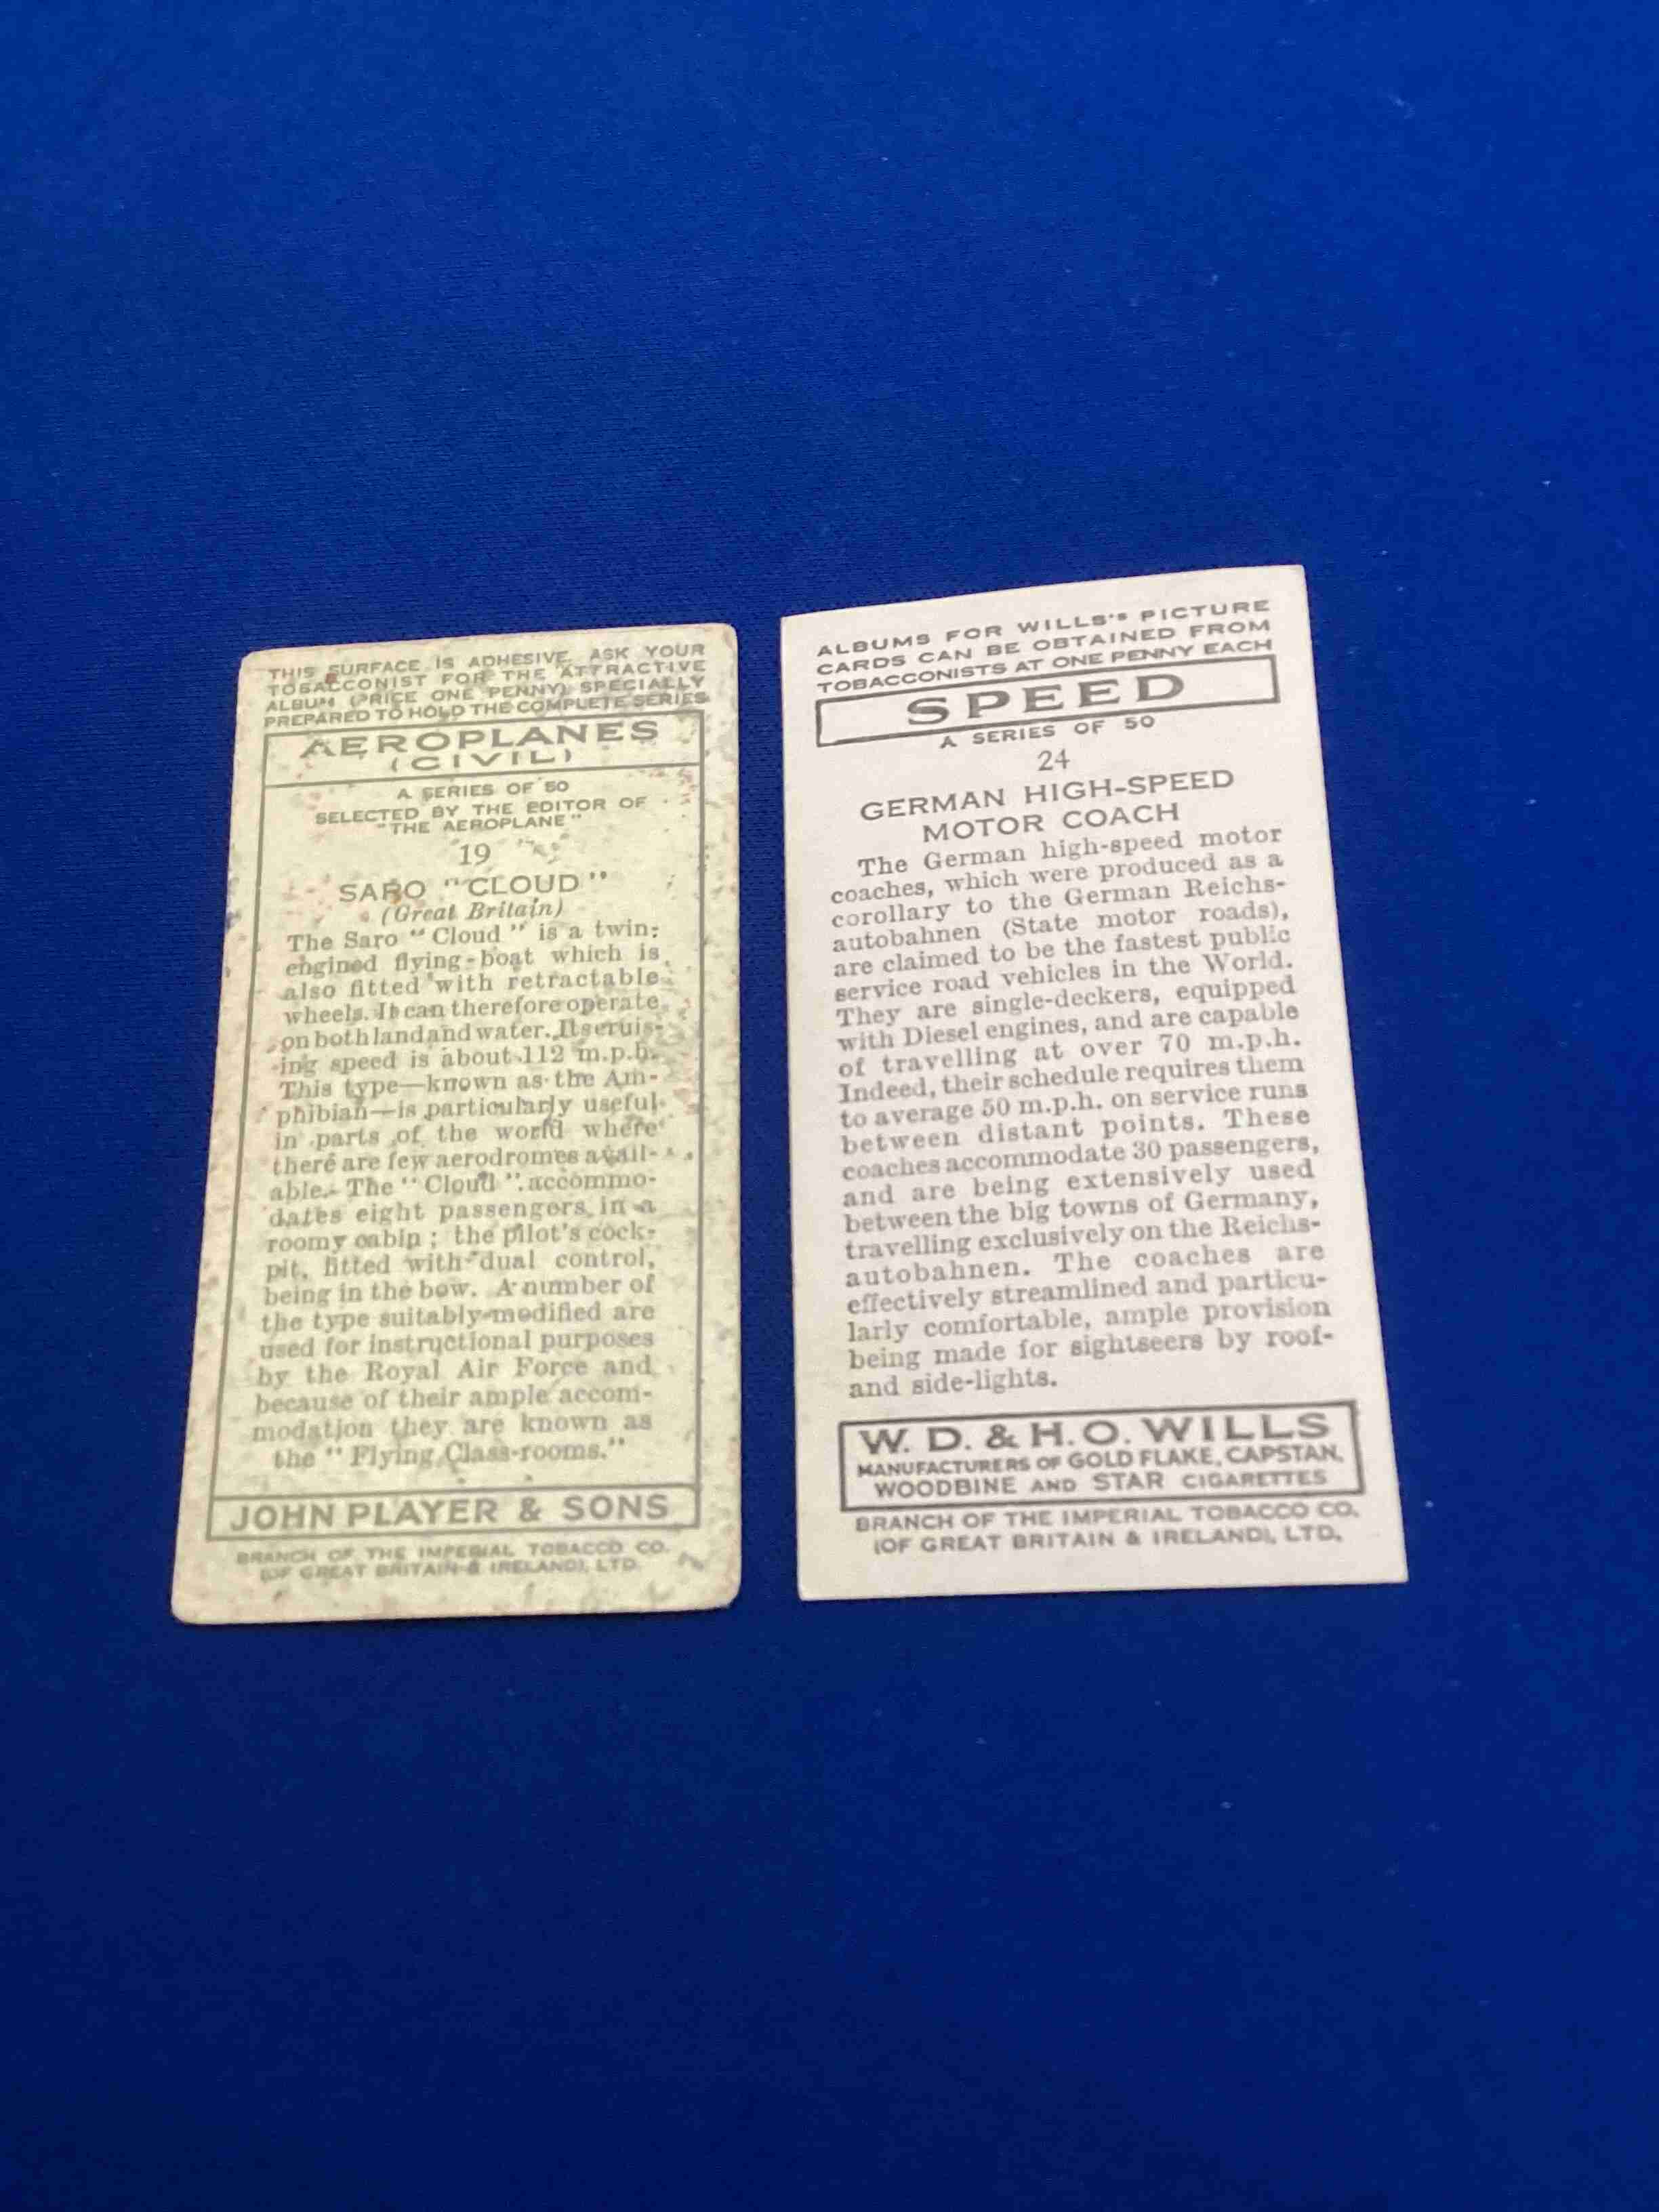 THIS SURFACE IS ADHESIVE. ASK YOUR
TOBACCONIST FOR THE ATTRACTIVE
ALBUM (PRICE ONE PENNY) SPECIALLY
PREPARED TO HOLD THE COMPLETE SERIES
AEROPLANES
(CIVIL)
A SERIES OF 50
SELECTED BY THE EDITOR OF
"THE AEROPLANE"
19
SARO "CLOUD"
(Great Britain)
The Saro "Cloud" is a twin-
engined flying-boat which is
also fitted with retractable
wheels. It can therefore operate
on both land and water. Its cruis-
ing speed is about 112 m.p.h.
This type—known as the Am-
phibian—is particularly useful
in parts of the world where
there are few aerodromes avail-
able. The "Cloud" accommo-
dates eight passengers in a
roomy cabin; the pilot's cock-
pit, fitted with dual control,
being in the bow. A number of
the type suitably modified are
used for instructional purposes
by the Royal Air Force and
because of their ample accom-
modation they are known as
the "Flying Class-rooms."
JOHN PLAYER & SONS
BRANCH OF THE IMPERIAL TOBACCO CO.
(OF GREAT BRITAIN & IRELAND), LTD.
ALBUMS FOR WILLS'S PICTURE
CARDS CAN BE OBTAINED FROM
TOBACCONISTS AT ONE PENNY EACH
SPEED
A SERIES OF 50
24
GERMAN HIGH-SPEED
MOTOR COACH
The German high-speed motor
coaches, which were produced as a
corollary to the German Reichs-
autobahnen (State motor roads),
are claimed to be the fastest public
service road vehicles in the World.
They are single-deckers, equipped
with Diesel engines, and are capable
of travelling at over 70 m.p.h.
Indeed, their schedule requires them
to average 50 m.p.h. on service runs
between distant points. These
coaches accommodate 30 passengers,
and are being extensively used
between the big towns of Germany,
travelling exclusively on the Reichs-
autobahnen. The coaches are
effectively streamlined and particu-
larly comfortable, ample provision
being made for sightseers by roof-
and side-lights.
W. D. & H. O. WILLS
MANUFACTURERS OF GOLD FLAKE, CAPSTAN,
WOODBINE AND STAR CIGARETTES
BRANCH OF THE IMPERIAL TOBACCO CO.
(OF GREAT BRITAIN & IRELAND), LTD.